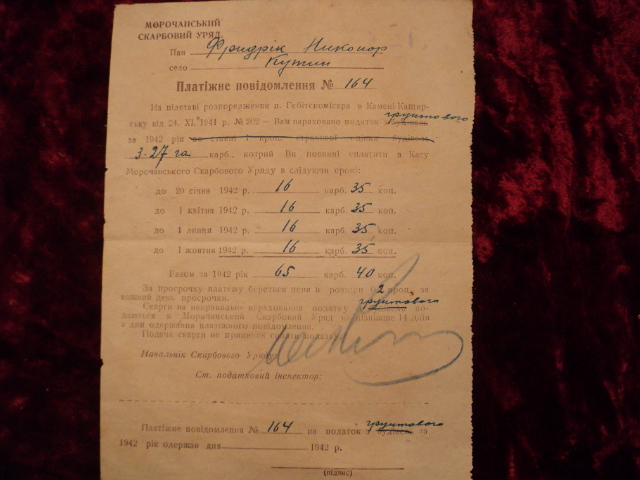 МОРОЧАНСЬКИЙ
СКАРБОВИЙ УРЯД
Пан Фридрік Никонор
село Кутин
Платіжне повідомлення № 164
На підставі розпорядження п. Гебітскомісара в Камені-Кашир-
ську від 24. XI. 1941 р. № 202 — Вам нараховано податок ґрунтового
за 1942 рік
3.27 га карб., котрий Ви повинні сплатити в Касу
Морочанського Скарбового Уряду в слідуючи строкі:
до 20 січня 1942 р. 16 карб. 35 коп.
до 1 квітня 1942 р. 16 карб. 35 коп.
до 1 липня 1942 р. 16 карб. 35 коп.
до 1 жовтня 1942 р. 16 карб. 35 коп.
Разом за 1942 рік 65 карб. 40 коп.
За прострочку платежу береться пеня в розмірі 2 проц. за
кожний день прострочки.
Скарги на неправильне нарахования податку ґрунтового по-
даються в Морочанський Скарбовий Уряд не пізніше 14 днів
з дня одержання платіжного повідомлення.
Подача скарги не припиняє сплати податку.
Начальник Скарбового Уряду
Ст. податковий інспектор:
Платіжне повідомлення № 164 на податок ґрунтового за
1942 рік одержав дня 1942 р.
(підпис)